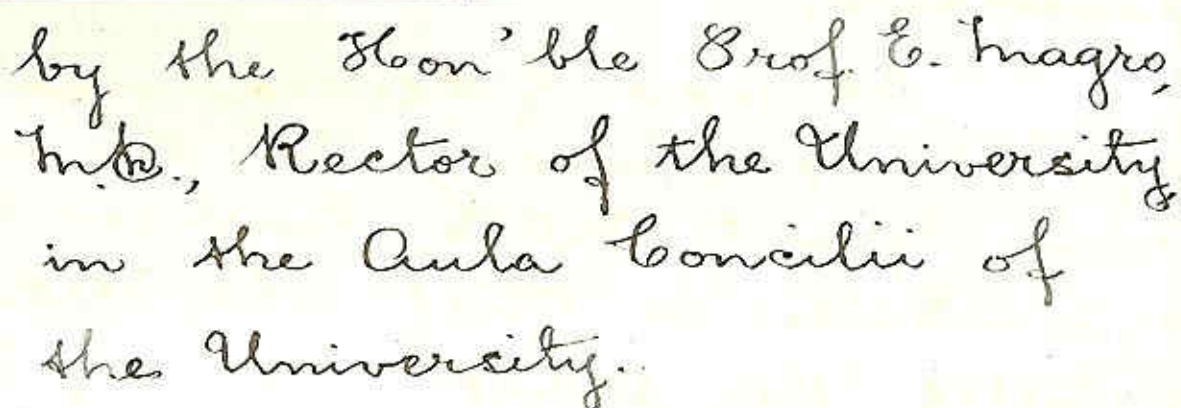 by the Hon'ble Prof. E. Magro,
M.D., Rector of the University,
in the Aula Concilii of
the University.